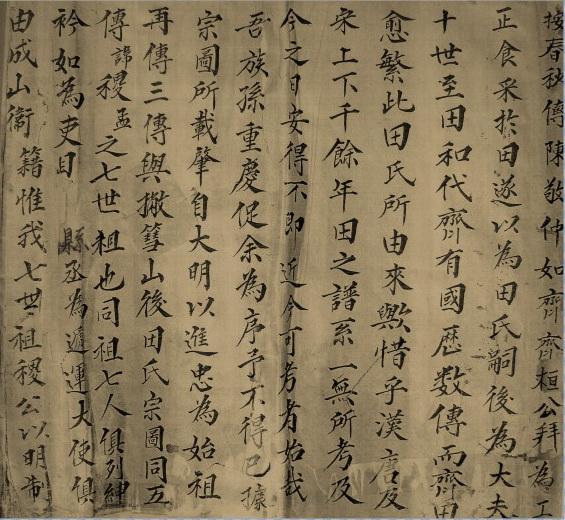 按春秋傳陳敬仲如齊齊桓公拜為工
正食采於田遂以為田氏嗣後為大夫
十世至田和代齊有國歷数傳而齊田
愈繁此田氏所由來歟惜乎漢唐及
宋上下千餘年田之譜系一無所考及
今之日安得不即近今可考者始哉
吾族孫重慶促余為序予不得已據
宗圖所載肇自大明以進忠為始祖
再傳三傳與撤簦山後田氏宗圖同五
傳諱稷孟之七世祖也同祖七人俱列紳
衿如為吏目縣丞為遞運大使俱
由成山衞籍惟我七世祖稷公以明制